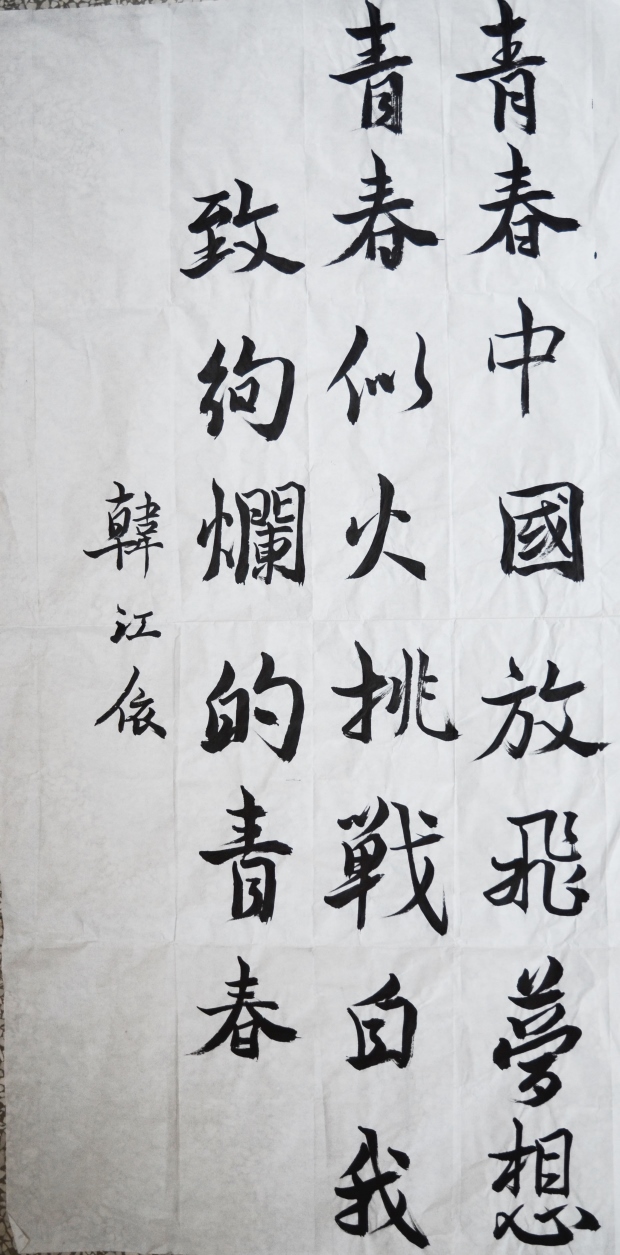 青春中國放飛夢想
青春似火挑戰自我
致絢爛的青春
韓江依